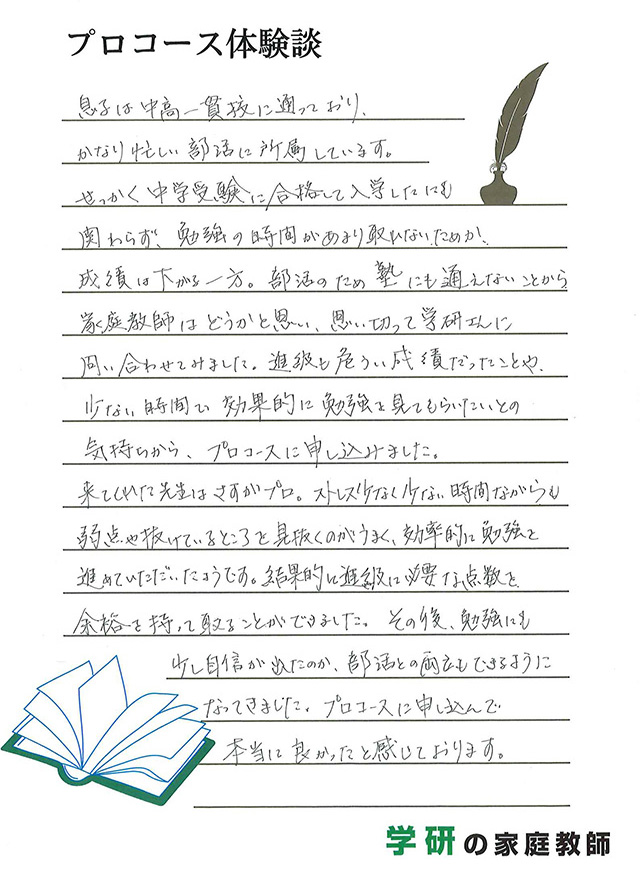 プロコース体験談
息子は中高一貫校に通っており、
かなり忙しい部活に所属しています。
せっかく中学受験に合格して入学したにも
関わらず、勉強の時間があまり取れないためか、
成績は下がる一方。部活のため塾にも通えないことから
家庭教師はどうかと思い、思い切って学研さんに
問い合わせてみました。進級も危うい成績だったことや、
少ない時間で効果的に勉強を見てもらいたいとの
気持ちから、プロコースに申し込みました。
来てくれた先生はさすがプロ。ストレス少なく少ない時間ながらも
弱点や抜けているところを見抜くのがうまく、効率的に勉強を
進めていただいたようです。結果的に進級に必要な点数を
余裕を持って取ることができました。その後、勉強にも
少し自信が出たのか、部活との両立もできるように
なってきました。プロコースに申し込んで
本当に良かったと感じております。
学研の家庭教師